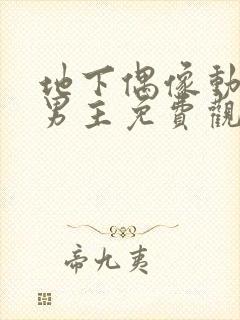 地下偶像動
男主免費觀
帝九夷